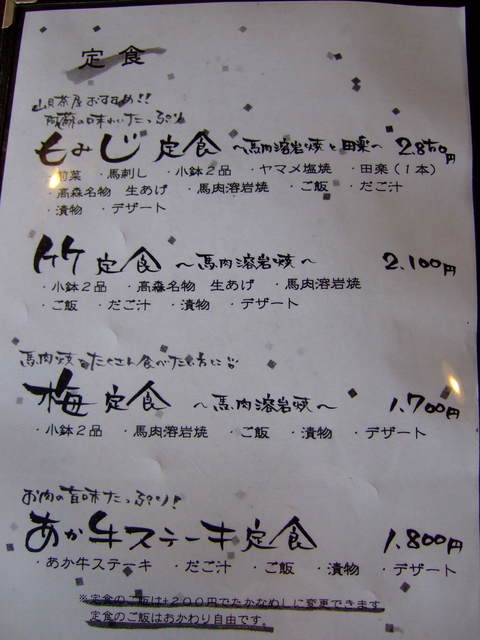 定食
山見茶屋おすすめ!!
阿蘇の味わいたっぷり
もみじ定食 ～馬肉溶岩焼と田楽～ 2.850円
・前菜 ・馬刺し ・小鉢2品 ・ヤマメ塩焼 ・田楽(1本)
・高森名物 生あげ ・馬肉溶岩焼 ・ご飯 ・だご汁
・漬物 ・デザート
竹定食 ～馬肉溶岩焼～ 2.100円
・小鉢2品 ・高森名物 生あげ ・馬肉溶岩焼
・ご飯 ・だご汁 ・漬物 ・デザート
馬肉焼をたくさん食べたい方に!!
梅定食 ～馬肉溶岩焼～ 1.700円
・小鉢2品 ・馬肉溶岩焼 ・ご飯 ・漬物 ・デザート
お肉の旨味たっぷり!
あか牛ステーキ定食 1.800円
・あか牛ステーキ ・だご汁 ・ご飯 ・漬物 ・デザート
※定食のご飯は+200円でたかなめしに変更できます
定食のご飯はおかわり自由です。